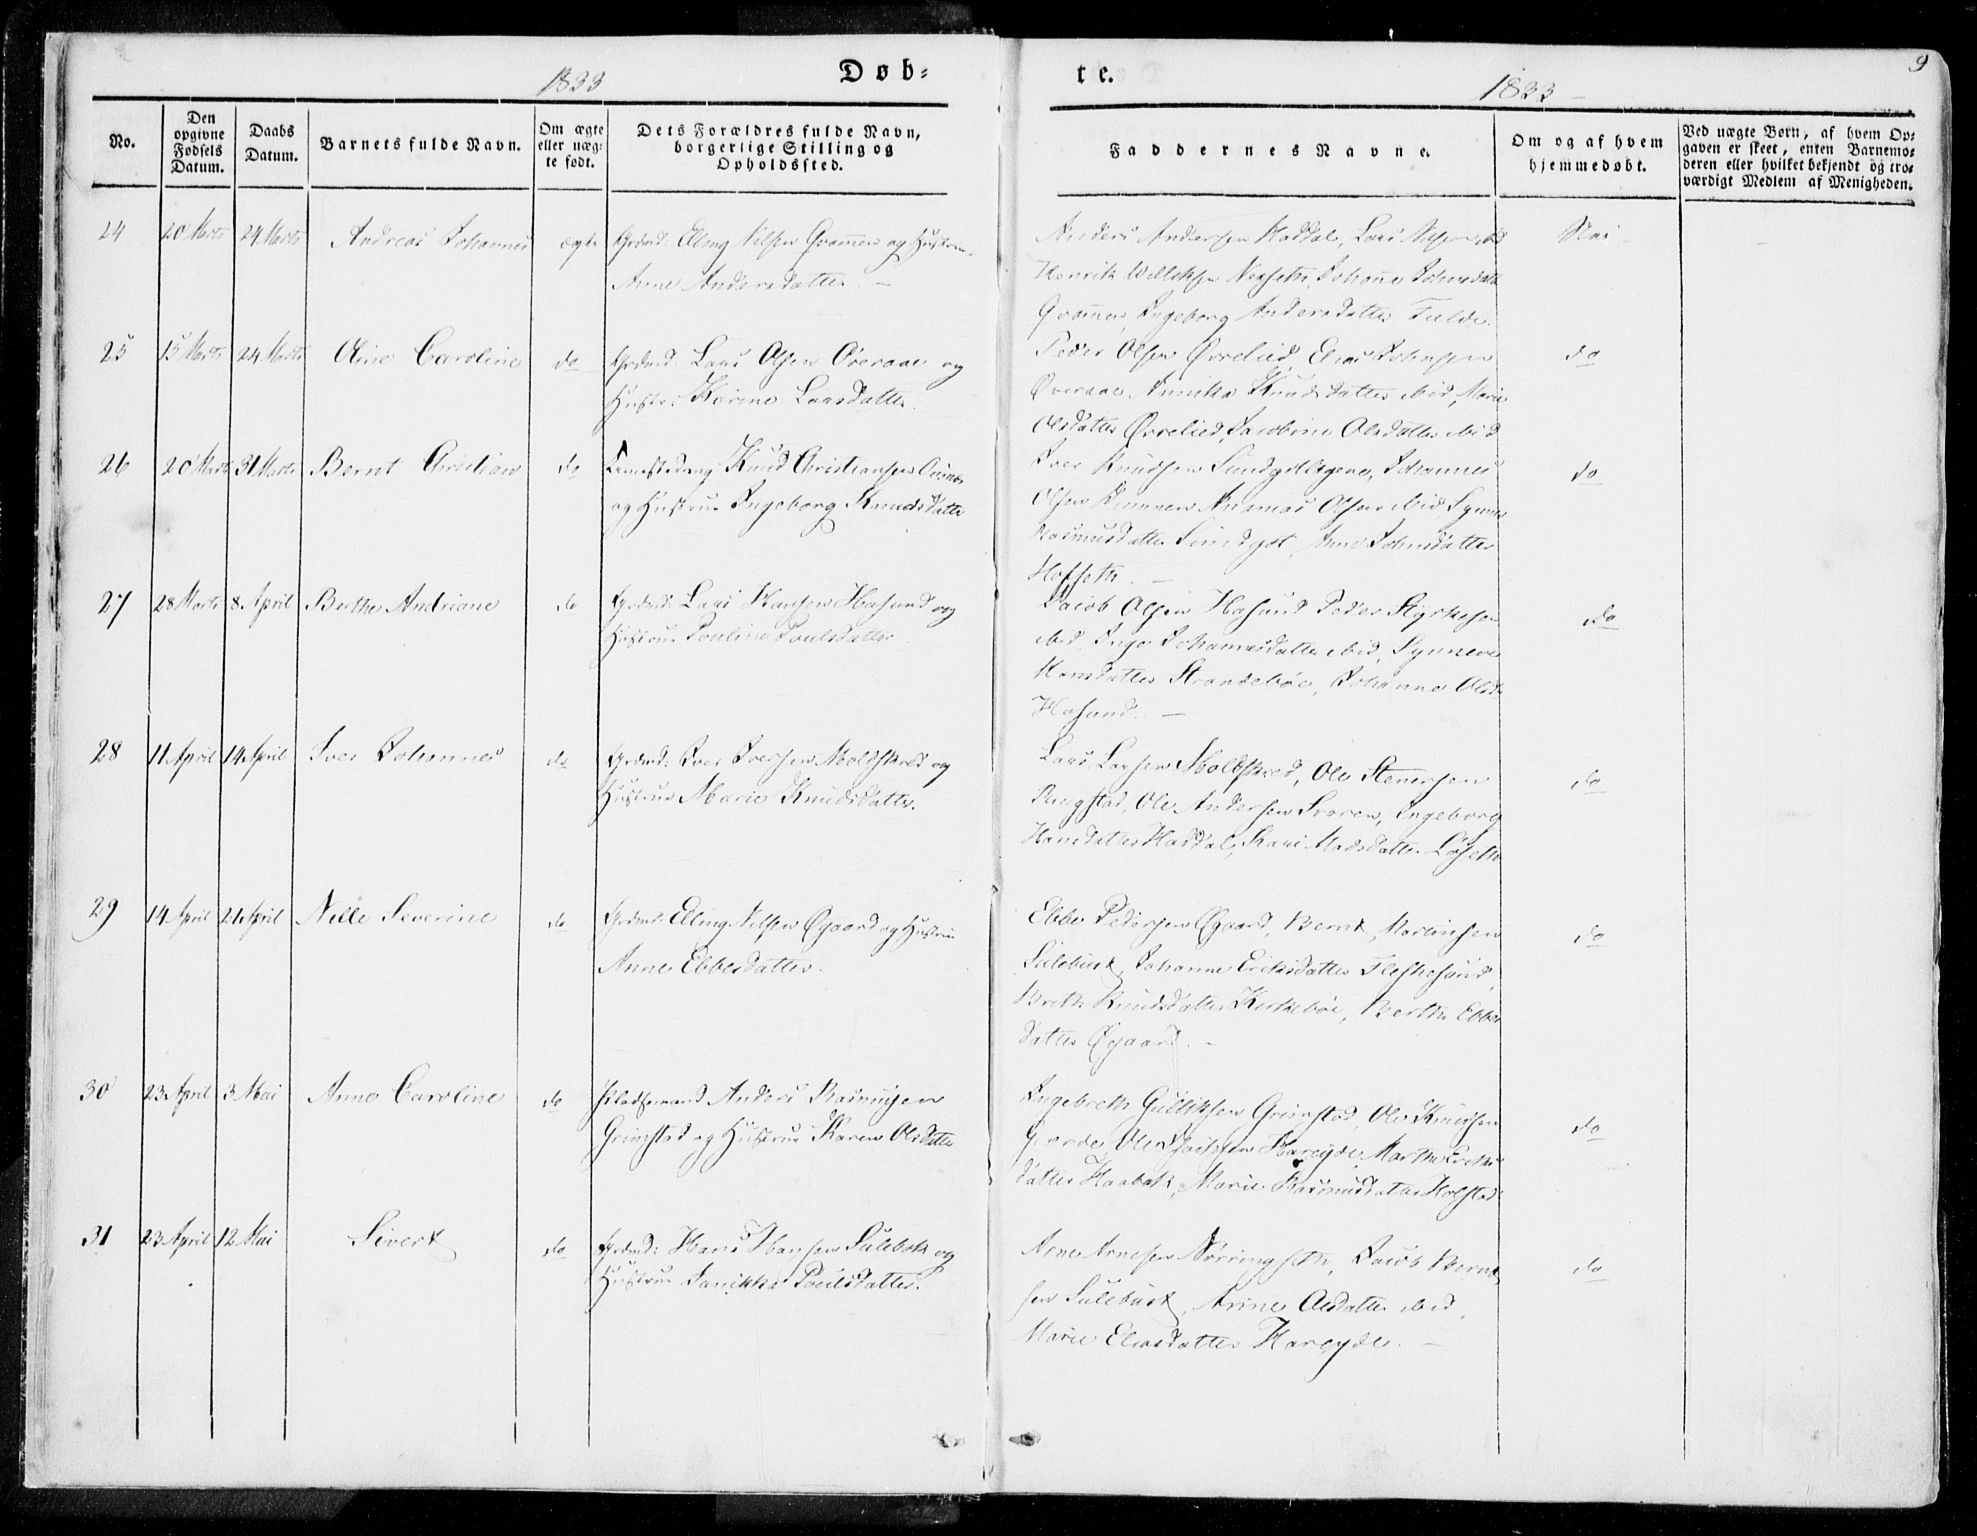 1833
Døb-
te.
1833
9
No.
Den opgivne Fødsels Datum.
Daabs Datum.
Barnets fulde Navn.
Om ægte eller uæg- te født.
Dets Forældres fulde Navn, borgerlige Stilling og Opholdssted.
Faddernes Navne.
Om og af hvem hjemmedøbt.
Ved uægte Børn, af hvem Op- gaven er skeet, enten Barnemo- deren eller hvilket bekjendt og tro- værdigt Medlem af Menigheden.
24 20 Marts 24 Marts Andreas Johannes ægte Grdmd: Elling Nilsen og Hustrue
Anne Andersdatter. –
Anders Andersen Haddal, Laas Nilsen ibid
Henrik Nesseth, Johanne
Ingeborg Andersdatter
Nei – –
25 15 Marts 24 Marts Oline Caroline do Grdmd: Laas Olsen Overaae og
Hustr: Karine Laasdatter.
Peder Olsen Øvrelied, Elias Johnsen
Overaae Annika Knudsdatter ibid, Marie
Olsdatter Øvrelied, Jacobine Olsdatter ibid
do
26 20 Marts 31 Marts Bernt Christian do Knud Christiansen
og Hustrue Ingeborg Knudsdatter
Iver Knudsen Johannes
Olsen Olsen ibid
Rasmusdatter Anne Johnsdatter
Hofseth. –
do
27 28 Marts 8 April Berthe Andriane do Grdmd: Laas Hansen Hasund og
Hustrue Pouline Poulsdatter
Jacob Olsen Hasund Peder Styrkesen
ibid, Inger Johannesdatter ibid, Synneve
Hansdatter Strandebøe, Johanne
Hasund. –
do
28 11 April 14 April Iver Johannes do Grdmd: Iver Iversen Moldskred og
Hustrue Marie Knudsdatter.
Laas Laasen Moldskred, Ole Stenersen
Ringstad, Ole Andersen Ingeborg
Hansdatter Haddal, Kari Madsdatter Løseth
do
29 14 April 21 April Nille Severine do Grdmd: Elling Nilsen Øgaard og Hustrue
Anne Ebbesdatter.
Ebbe Pedersen Øgaard, Bernt Martinsen
Sulebust, Johanne Eriksdatter Fleskesund,
Knudsdatter Kirkebøe, Berthe Ebbes
datter Øgaard. –
do
30 23 April 3 Mai Anne Caroline do Pladsemand Anders Rasmusen
Grimstad og Hustrue Karen Olsdatter
Ingebreth Gullichsen Grimstad, Ole Knudsen
Ole Hareyde, Marthe Eriks
datter Haabak, Marie Rasmusdatter Kolstad
do
31 23 April 12 Mai Sivert do Grdmd: Hans Hansen Sulebak og
Hustrue Janikke Poulsdatter.
Arne Arnesen Jacob Bernt
sen Sulebust, Anne Olsdatter ibid,
Marie Eliasdatter Hareyde. –
do